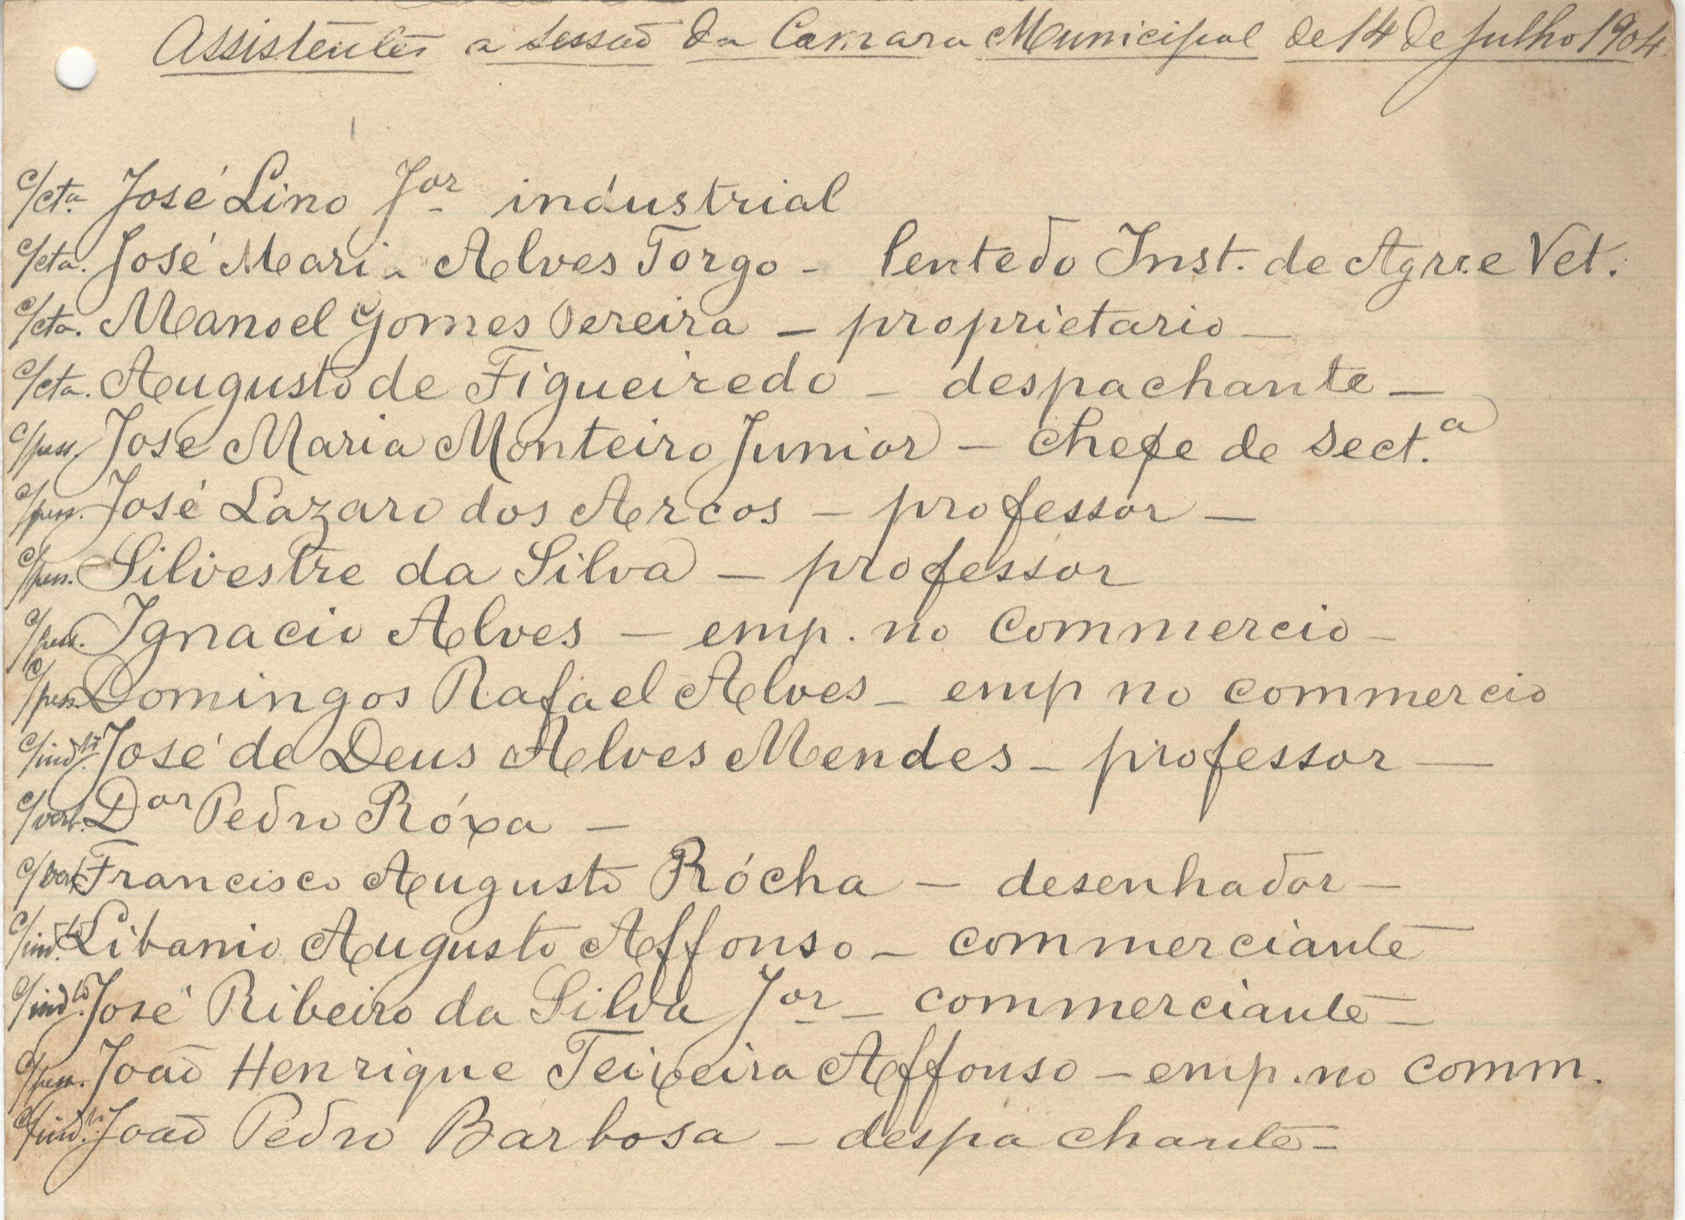 Assistentes a sessão da Camara Municipal de 14 de Julho 1904
c/cta. José Lino Jor industrial
c/cta. José Maria Alves Torgo - lente do Inst. de Agr. e Vet.
c/cta. Manoel Gomes Pereira - proprietario -
c/cta. Augusto de Figueiredo - despachante -
c/pess. José Maria Monteiro Junior - chefe de sect.a
c/pess. José Lazaro dos Arcos - professor -
c/pess. Silvestre da Silva - professor
c/pess. Ignacio Alves - emp. no commercio -
c/pess. Domingos Rafael Alves - emp no commercio
c/ind.to José de Deus Alves Mendes - professor -
c/verb. Dor Pedro Róxa -
c/verb. Francisco Augusto Rócha - desenhador -
c/ind.to Libanio Augusto Affonso - commerciante
c/ind.to José Ribeiro da Silva Jor - commerciante -
c/pess. João Henrique Teixeira Affonso - emp. no comm.
c/ind.to João Pedro Barbosa - despachante -